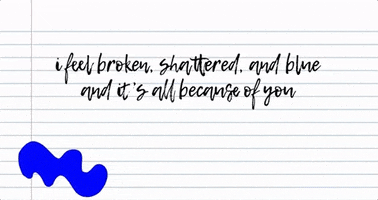 i feel broken, shattered, and blue
and it's all because of you